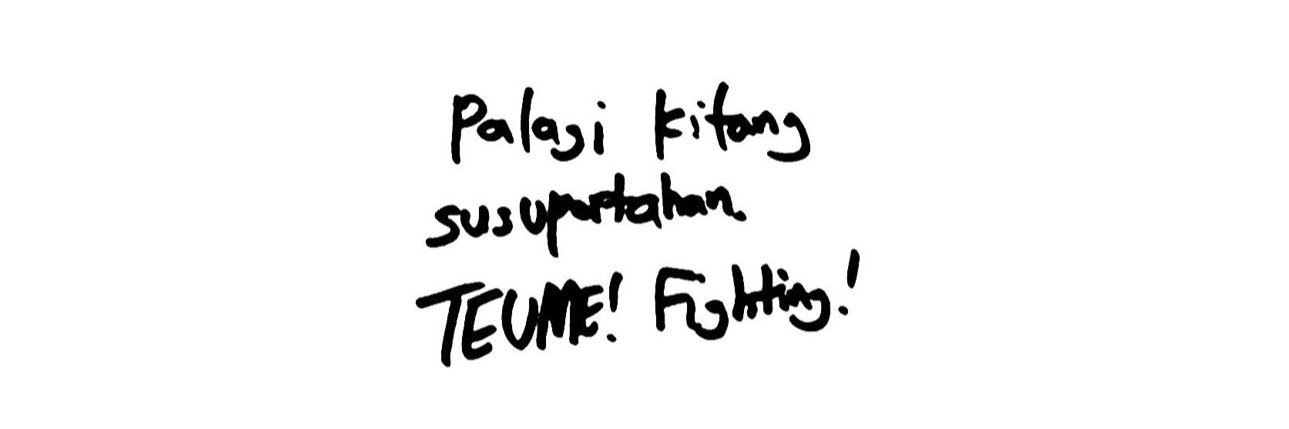 Palagi kitang
susuportahan
TEUME! Fighting!